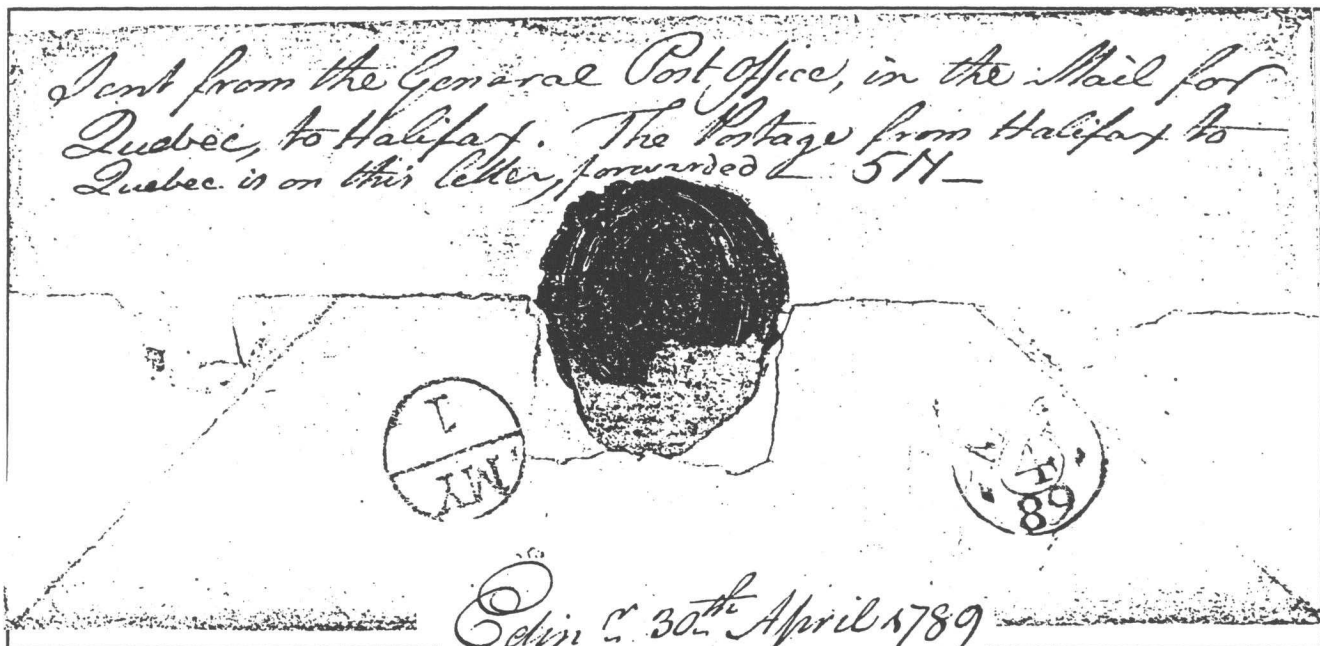 Sent from the General Post Office, in the Mail for
Quebec, to Halifax. The Postage from Halifax to
Quebec is on this letter, forwarded
1
MY
89
Edinr. 30th April 1789